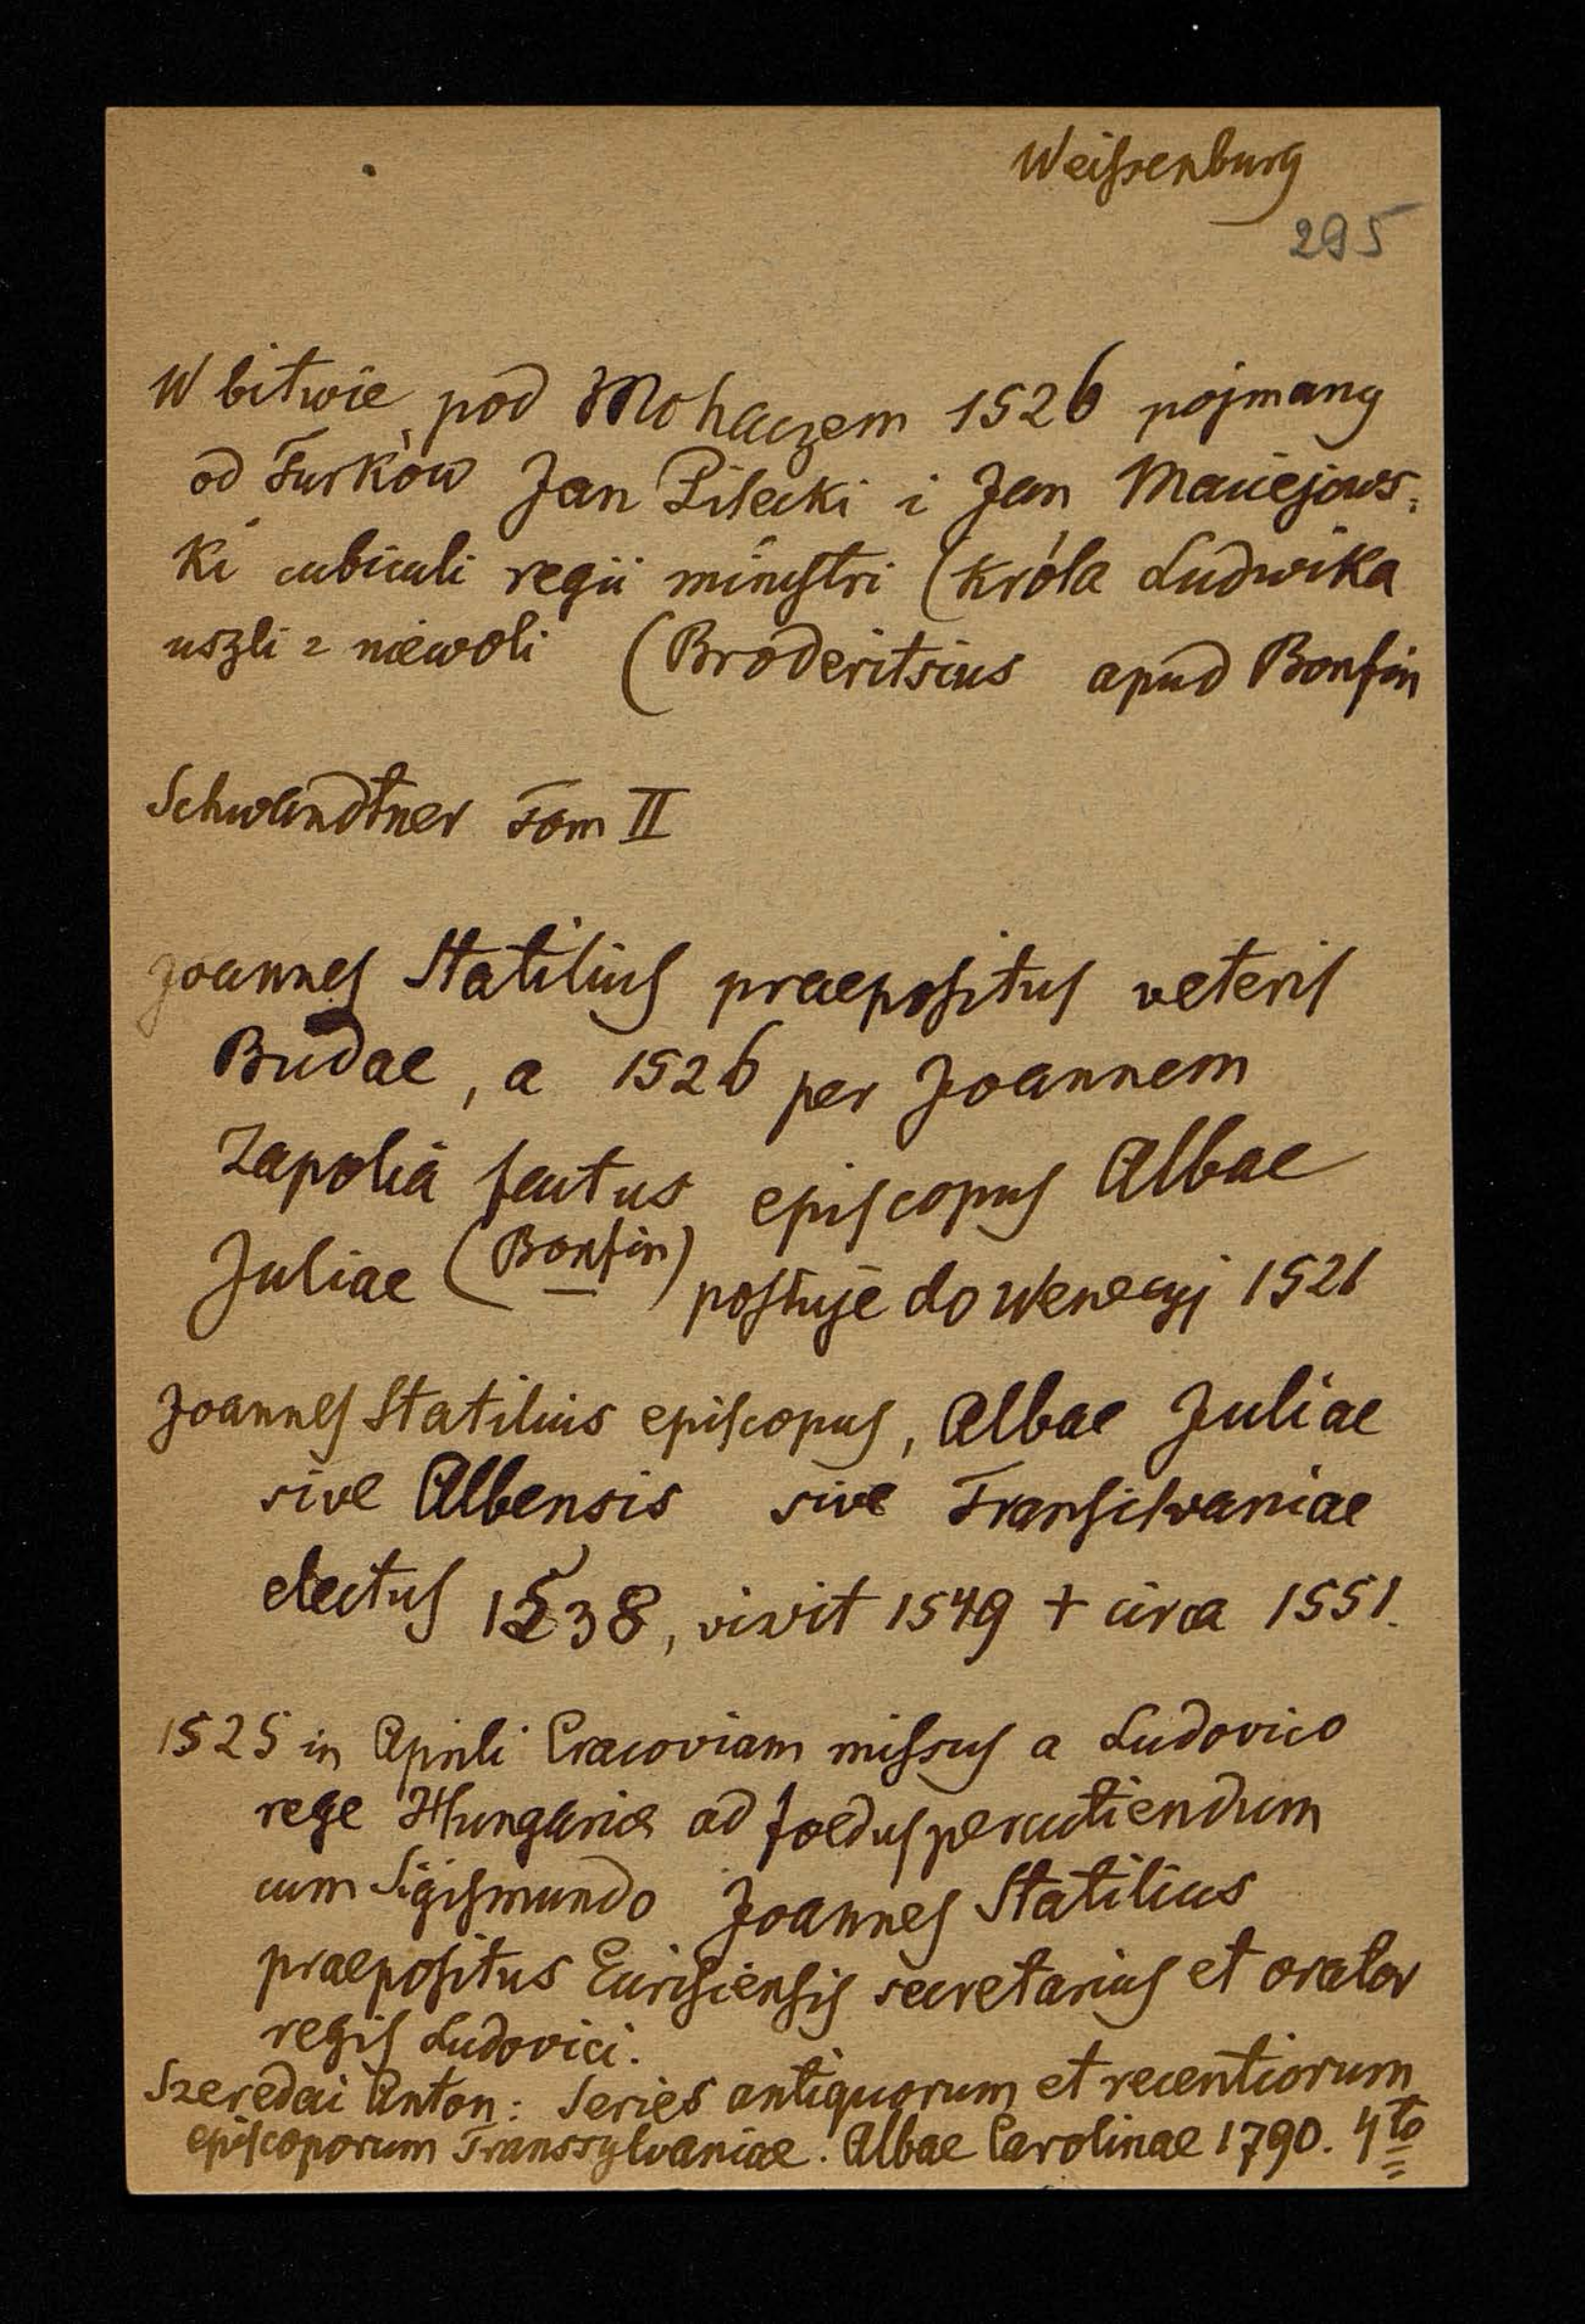 Weissenburg
295
W bitwie pod Mohaczem 1526 pojmany
od Turków Jan Pilecki i Jan Maciejows-
ki cubiculi regii ministri (króla Ludwika
uszli z niewoli (Broderitsius apud Bonfin
Schwandtner Tom II
Joannes Statilius praepositus veteris
Budae, a 1526 per Joannem
Zapolia factus episcopus Albae
Juliae (Bonfin) posłuje do Wenecyj 1521
Joannes Statilius episcopus, Albae Juliae
sive Albensis sive Transilvaniae
electus 1538, vixit 1549 + circa 1551.
1525 in Aprili Cracoviam missus a Ludovico
rege Hungariae ad foedus percutiendum
cum Sigismundo Joannes Statilius
praepositus secretarius et orator
regis Ludovici.
Szeredai Anton: Series antiquorum et recentiorum
episcoporum Transsylvaniae. Albae Carolinae 1790. 4to